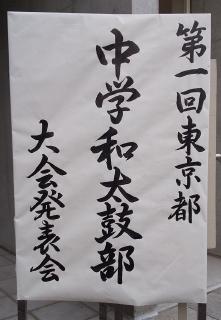 第一回東京都
中学和太鼓部
大会発表会